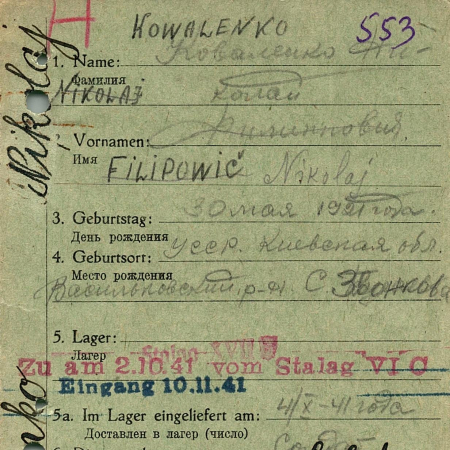 H
KOWALENKO
553
1. Name: Коваленко Ни-
Фамилия
NIKOLAJ колай
2. Vornamen: Филиппович.
Имя
FILIPOWIĆ Nikolaj
3. Geburtstag: 30 мая 1921 года.
День рождения
4. Geburtsort: УССР. Киевская обл.
Место рождения
Васильковский р-н С. Звонкова
5. Lager: Stalag XVII B
Лагер
Zu am 2.10.41 vom Stalag VI C
Eingang 10.11.41
5a. Im Lager eingeliefert am: 4/X-41 года
Доставлен в лагер (число)
Nikolaj
nko